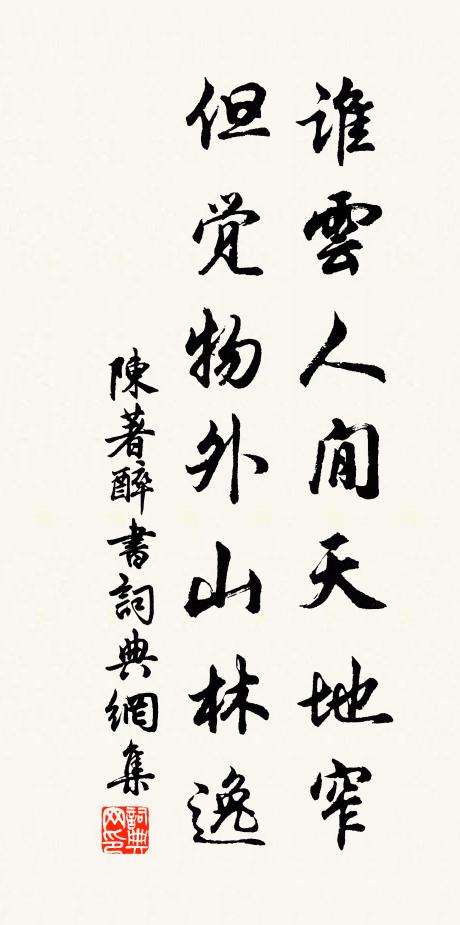 誰雲人間天地窄
但觉物外山林逸
陳著醉書詞典網集
詞典网印